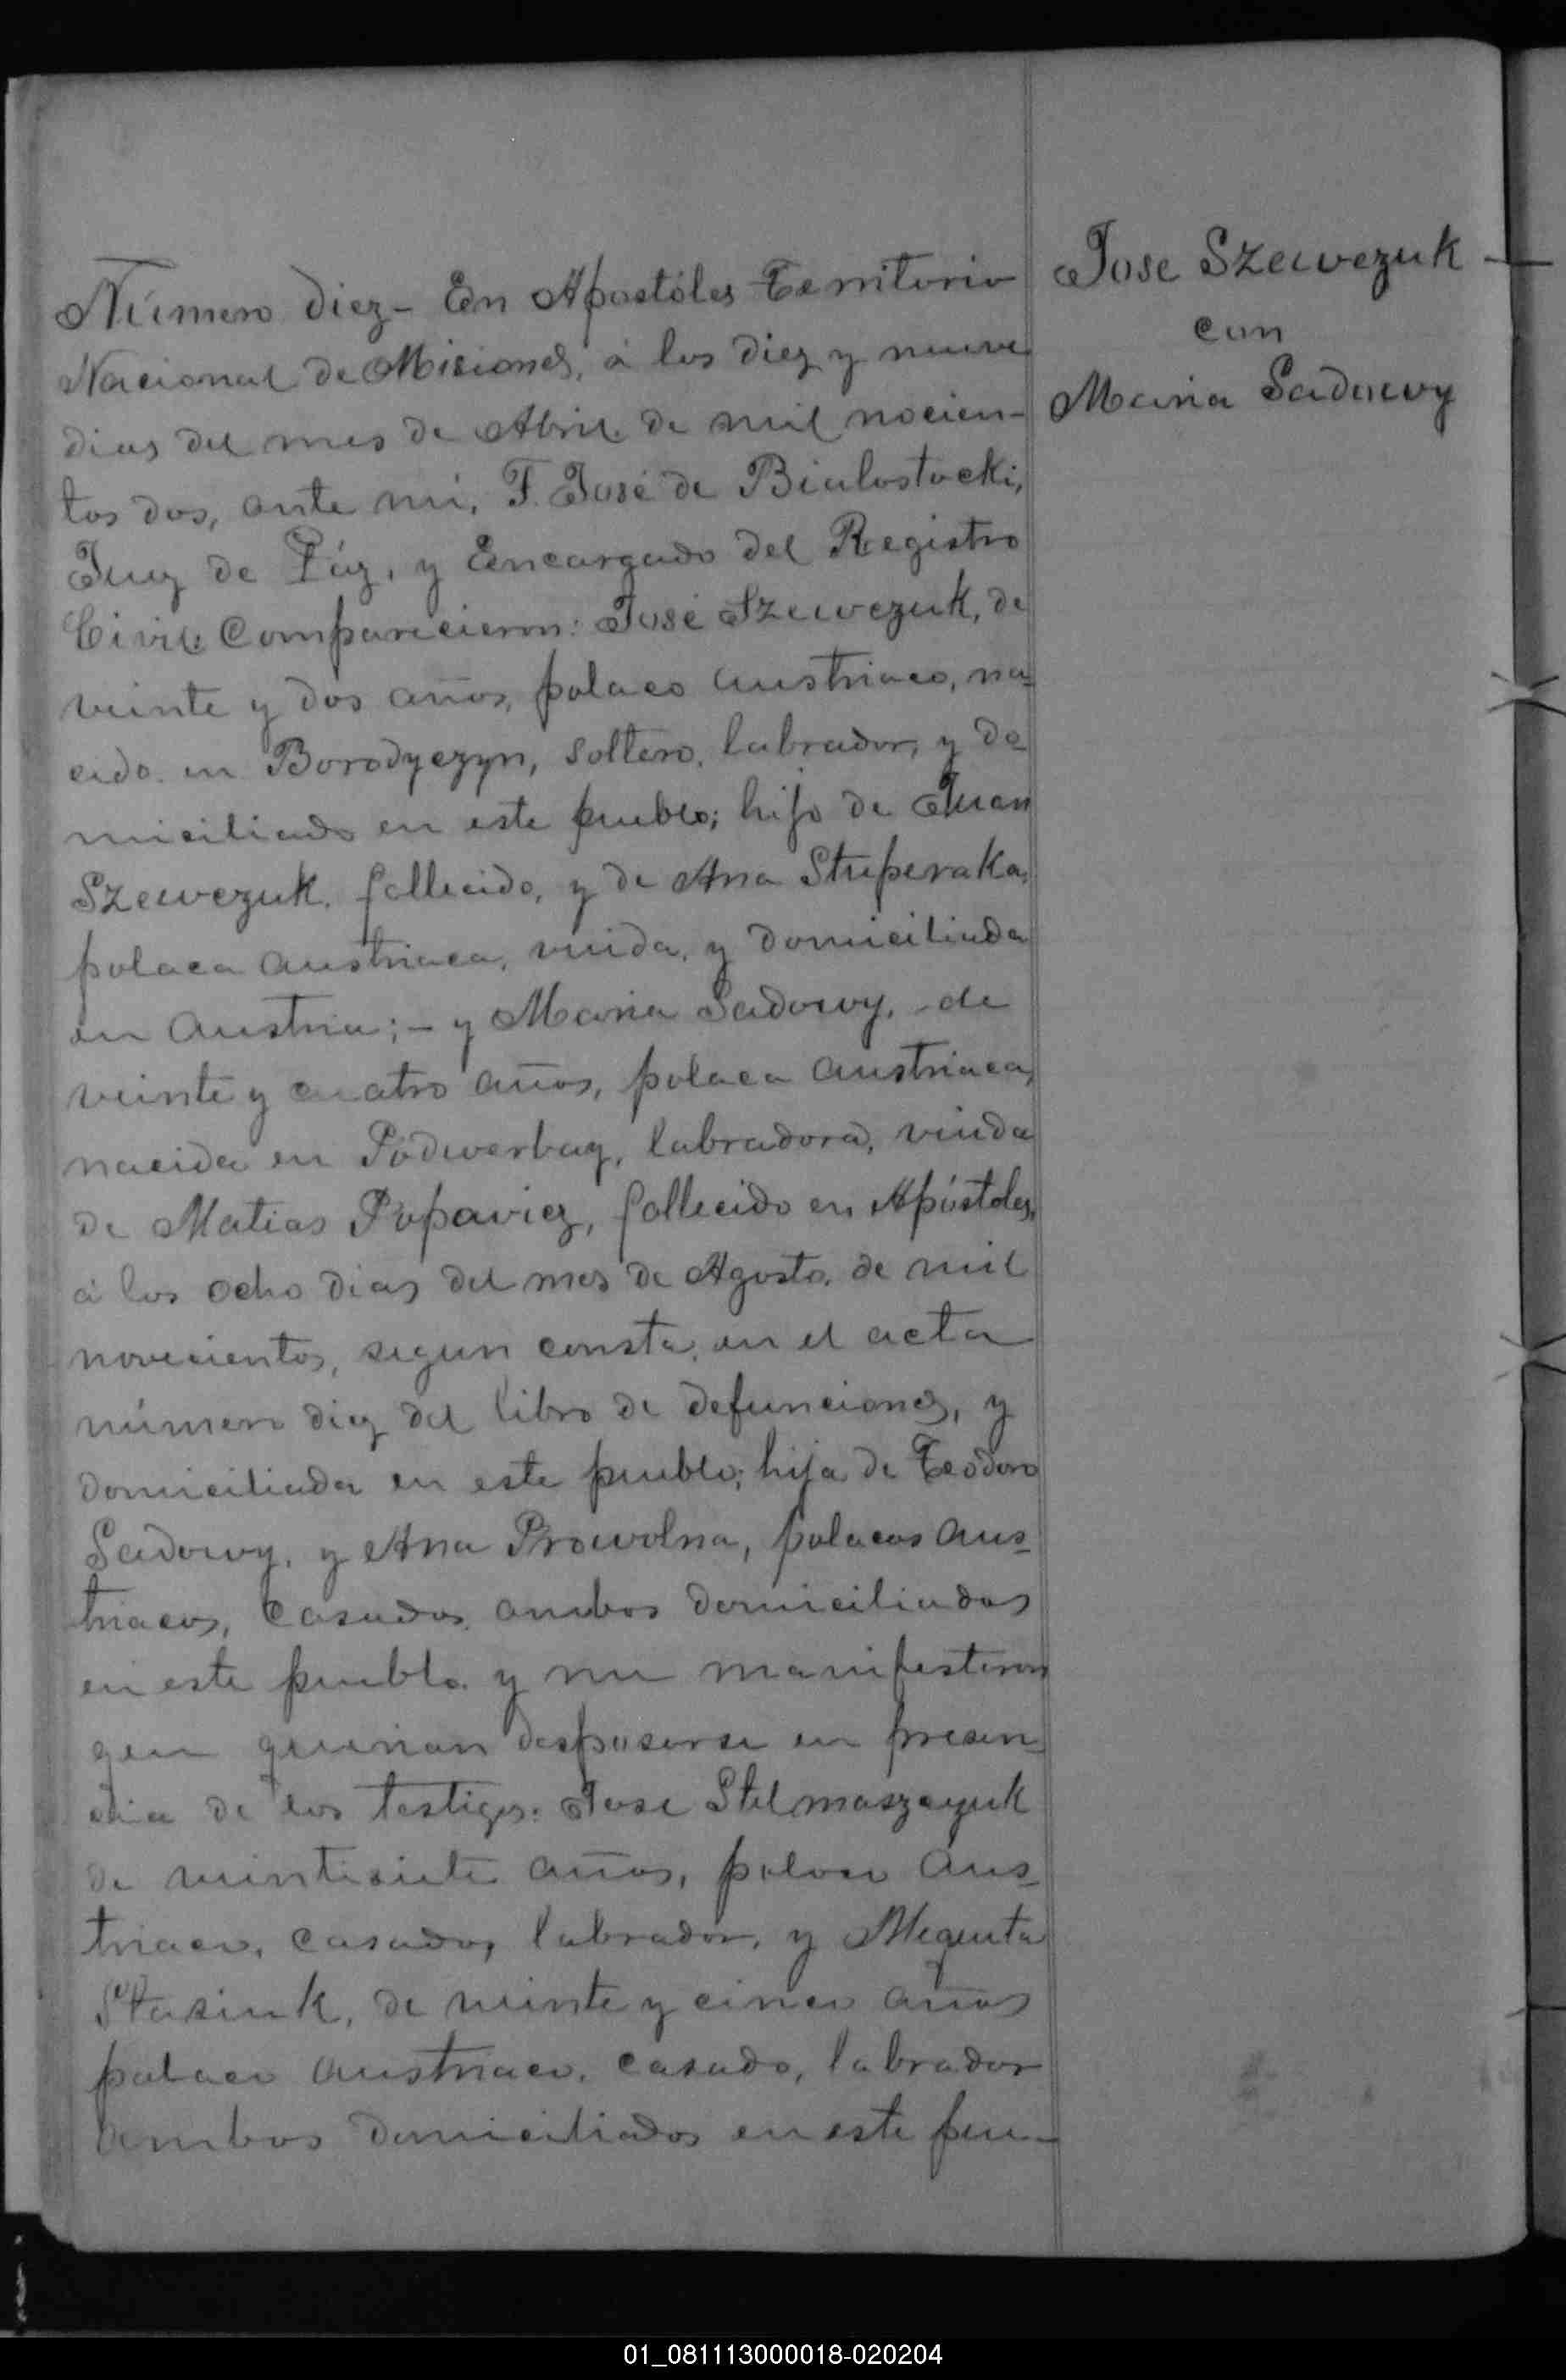 Número diez - En Apostóles Territorio
Nacional de Misiones, á los diez y nueve
dias del mes de Abril de mil nocien-
tos dos, ante mi, F. José de Bialostocki,
Juez de Páz, y Encargado del Registro
Civil: Comparecieron: José Szewczuk, de
veinte y dos años, polaco austriaco, na-
cido en Borodyczyn, soltero, labrador, y do-
miciliado en este pueblo; hijo de Juan
Szewczuk, fallecido, y de Ana Stuperaka,
polaca austriaca, viuda, y domiciliada
en Austria; - y Maria Sadowy, de
veinte y cuatro años, polaca austriaca,
nacida en Podwerbaz, labradora, viuda
de Matias Popavicz, fallecido en Apóstoles,
á los ocho dias del mes de Agosto de mil
novecientos, segun consta en el acta
número diez del libro de defunciones, y
domiciliada en este pueblo; hija de Teodoro
Sadowy, y Ana Prowolna, polacos aus-
triacos, casados, ambos domiciliados
en este pueblo y me manifestaron
que querian desposarse en presen-
cia de los testigos: Jose Stelmaszczyuk
de veintisiete años, polaco aus-
triaco, casado, labrador, y Mequita
Stasiuk, de veinte y cinco años
polaco austriaco, casado, labrador
ambos domiciliados en este pue-
Jose Szewczuk
con
Maria Sadowy
01_081113000018-020204